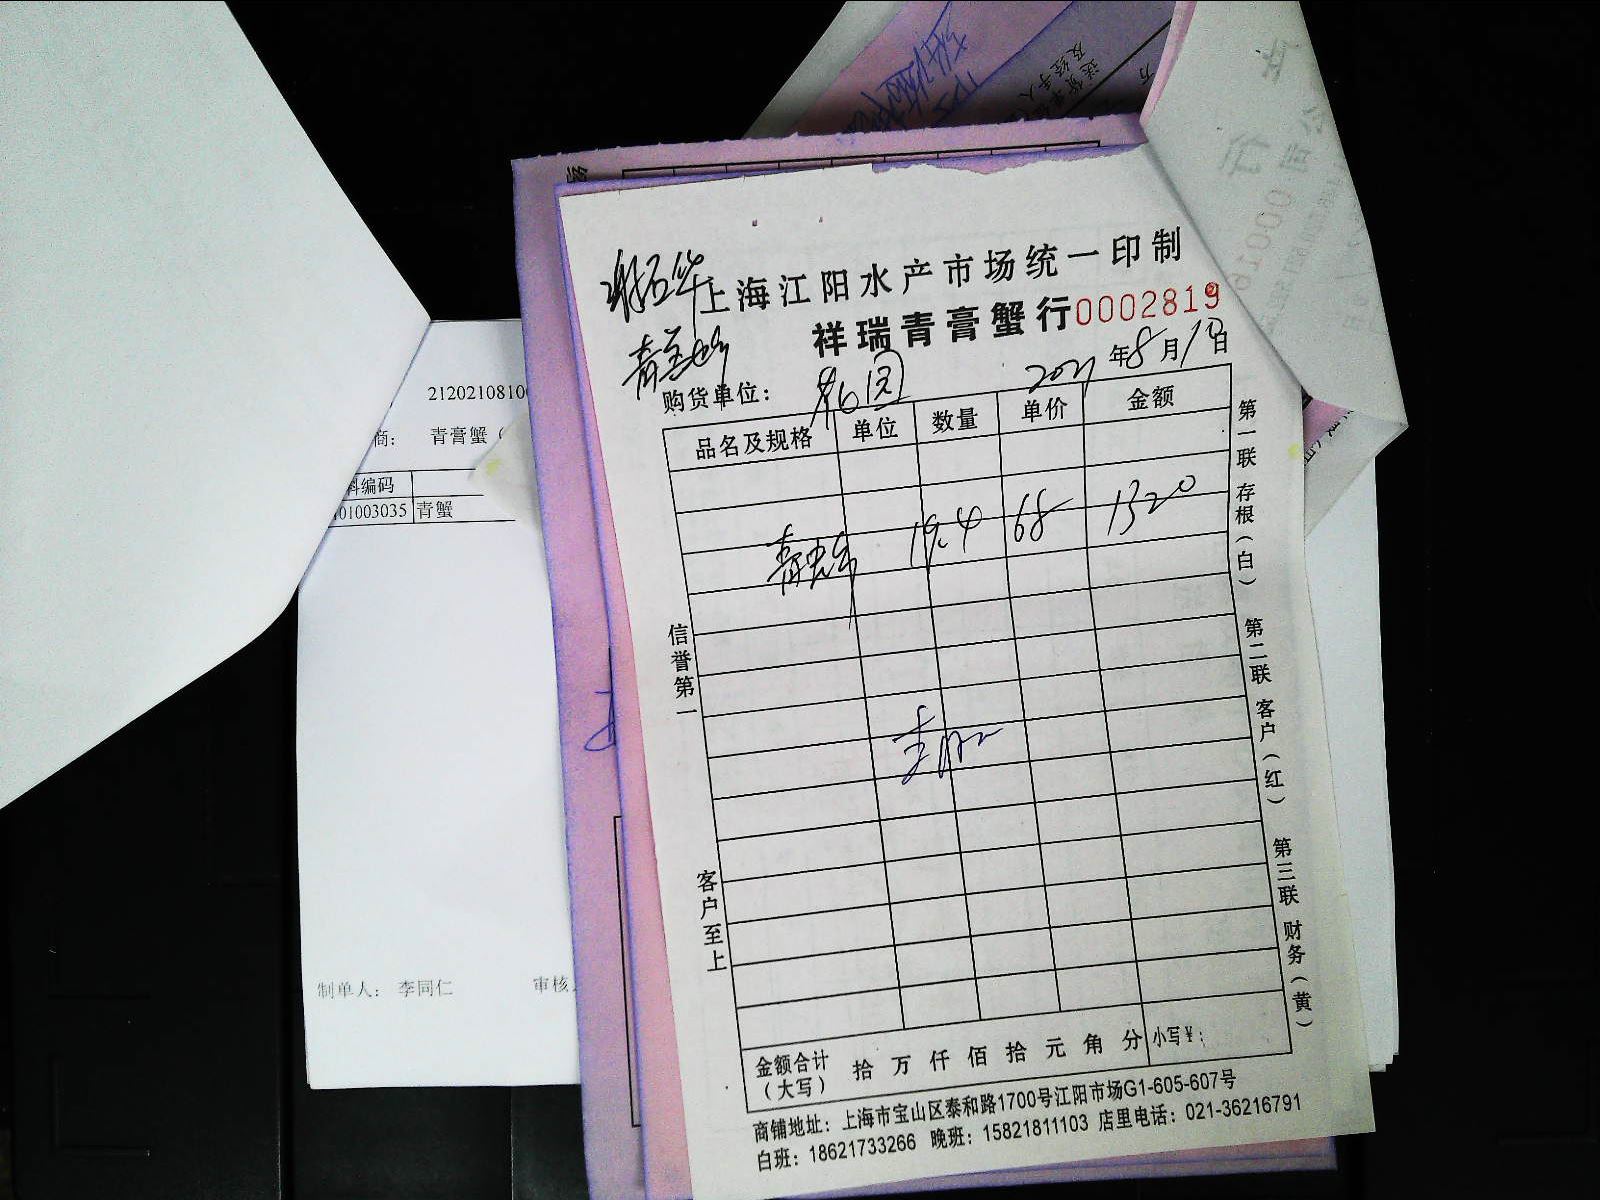 上海江阳水产市场统一印制
祥瑞青膏蟹行0002819
2021年8月10日
购货单位：
品名及规格 单位 数量 单价 金额
19.4 68 1320
信誉第一
客户至上
第一联 存根（白）
第二联 客户（红）
第三联 财务（黄）
金额合计（大写） 拾 万 仟 佰 拾 元 角 分 小写￥：
商铺地址：上海市宝山区泰和路1700号江阳市场G1-605-607号
白班：18621733266 晚班：15821811103 店里电话：021-36216791
2120210810
商： 青膏蟹（
料编码
01003035 青蟹
制单人： 李同仁 审核
送货单位
及经手人